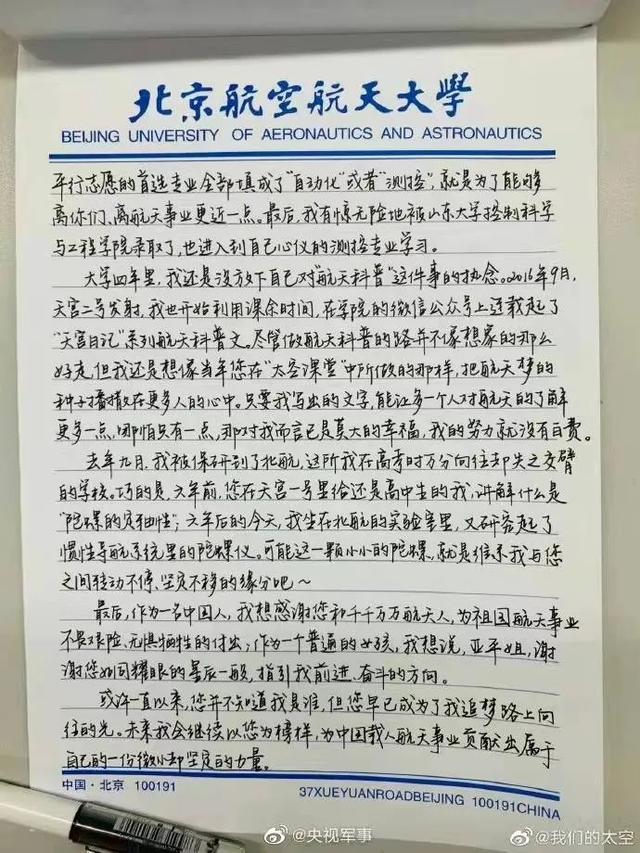 北京航空航天大學
BEIJING UNIVERSITY OF AERONAUTICS AND ASTRONAUTICS
平行志愿的首选专业全部填成了“自动化”或者“测控”,就是为了能够
离你们、离航天事业更近一点。最后,我有惊无险地被山东大学控制科学
与工程学院录取了,也进入到自己心仪的测控专业学习。
大学四年里,我还是没放下自己对“航天科普”这件事的执念。2016年9月,
天宫二号发射,我也开始利用课余时间,在学院的微信公众号上连载起了
“天宫日记”系列航天科普文。尽管做航天科普的路并不像想象的那么
好走,但我还是想像当年您在“太空课堂”中所做的那样,把航天梦的
种子播撒在更多人的心中。只要我写出的文字,能让多一个人对航天的了解
更多一点,即怕只有一点,那对我而言已是莫大的幸福,我的努力就没有白费。
去年九月,我被保研到了北航,这所我在高考时万分向往却失之交臂
的学校。巧的是,六年前,您在天宫一号里给还是高中生的我,讲解什么是
“陀螺的定轴性”;六年后的今天,我坐在北航的实验室里,又研究起了
惯性导航系统里的陀螺仪。可能这一颗小小的陀螺,就是维系我与您
之间转动不停、坚定不移的缘分吧~
最后,作为一名中国人,我想感谢您和千千万万航天人,为祖国航天事业
不畏艰险、无惧牺牲的付出;作为一个普通的女孩,我想说,亚平姐,谢
谢您如同耀眼的星辰一般,指引我前进、奋斗的方向。
或许一直以来,您并不知道我是谁,但您早已成为了我追梦路上向
往的光。未来我会继续以您为榜样,为中国载人航天事业贡献出属于
自己的一份微小却坚定的力量。
中国·北京 100191
37XUEYUANROADBEIJING 100191CHINA
@央视军事
@我们的太空